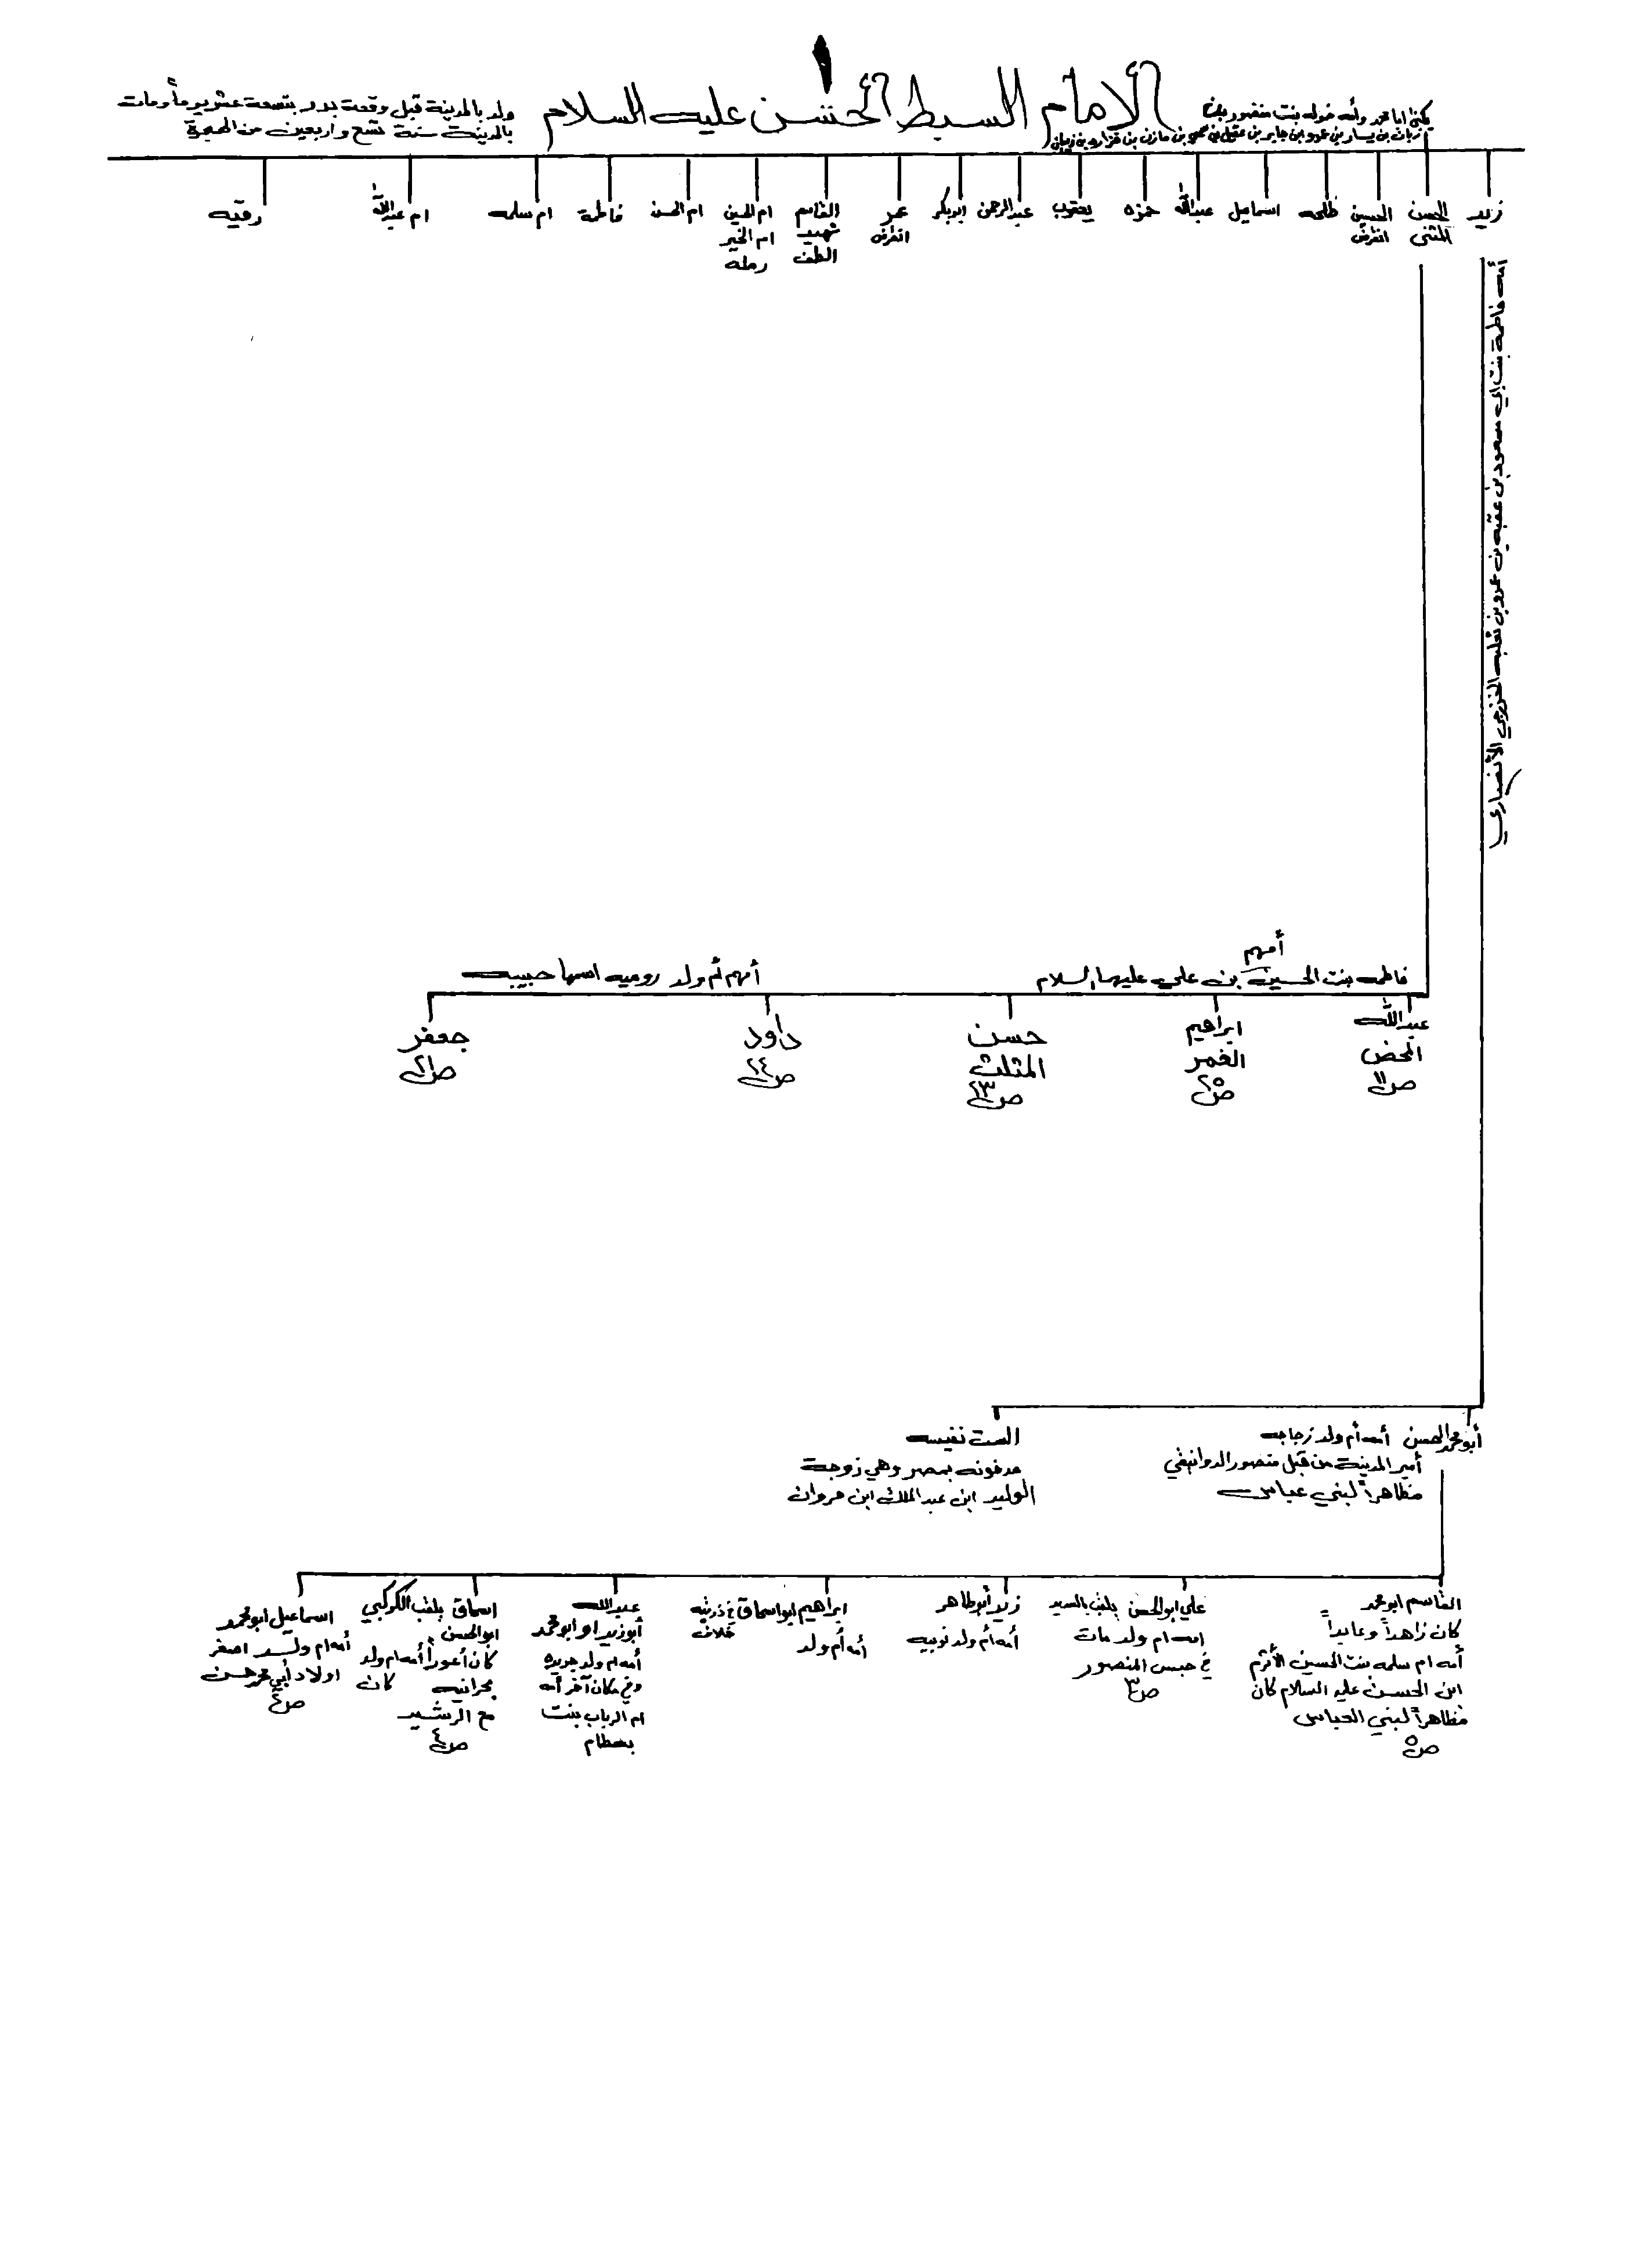 ١
الامام السبط الحسن عليه السلام
يكنى ابا محمد وأمه خوله بنت منضور بن
زبان بن يسار بن عمرو بن جابر بن عقيل بن بن مازن بن فزاره بن
ولد بالمدينة قبل وقعت بدر بتسعت عشر يوماً ومات
بالمدينة سنة تسع واربعين من الهجرة
زيد
الحسن
المثنى
الحسين
انقرض
طلحه
اسماعيل
عبدالله
حمزه
يعقوب
عبدالرحمن
ابوبكر
عمر
انقرض
القاسم
شهيد
الطف
ام الحسين
ام الخير
رمله
ام الحسن
فاطمة
ام سلمه
ام عبدالله
رقيه
أمه فاطمة بنت ابي مسعود بن عقبه بن عمرو بن ثعلبه الخزرجي الأنصاري
أمهم
فاطمه بنت الحسين بن علي عليهما السلام
أمهم أم ولد روميه اسمها حبيبه
عبدالله
المحض
ص١١
ابراهيم
الغمر
ص٢٥
حسن
المثلث
ص٢٣
داود
ص٢٤
جعفر
ص٢١
أبو محمد الحسن أمه أم ولد زجاجه
أمير المدينة من قبل منصور الدوانيقي
مظاهراً لبني عباس
الست نفيسه
مدفونه بمصر وهي زوجة
الوليد ابن عبد الملك ابن مروان
القاسم ابو محمد
كان زاهداً وعابداً
أمه ام سلمه بنت الحسين الأثرم
ابن الحسن عليه السلام كان
مظاهراً لبني العباس
ص٥
علي ابو الحسن يلقب بالسديد
امه ام ولد مات
في حبس المنصور
ص٣
زيد أبو طاهر
أمه أم ولد نوبيه
ابراهيم ابو اسحاق في ذريته
خلاف
أمه أم ولد
عبدالله
أبو زيد او ابو محمد
أمه ام ولد جريده
وفي مكان آخر أمه
ام الرباب بنت
بسطام
اسحاق يلقب الكوكبي
ابو الحسن
كان أعوراً أمه ام ولد
بحرانيه كان
مع الرشيد
ص٤
اسماعيل ابو محمد
أمه ام ولد اصغر
اولاد أبي محمد حسن
ص٢